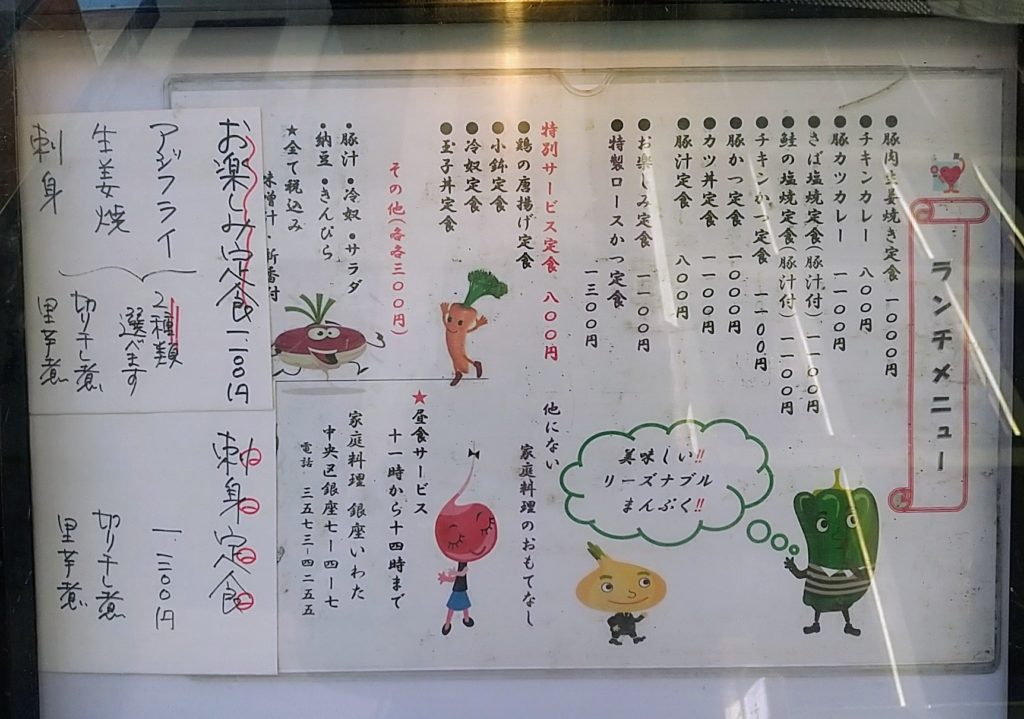 ランチメニュー
●豚肉生姜焼き定食 一〇〇〇円
●チキンカレー 八〇〇円
●豚カツカレー 一一〇〇円
●さば塩焼定食(豚汁付)一一〇〇円
●鮭の塩焼定食(豚汁付)一一〇〇円
●チキンかつ定食 一一〇〇円
●豚かつ定食 一〇〇〇円
●カツ丼定食 一一〇〇円
●豚汁定食 八〇〇円
●お楽しみ定食 一一〇〇円
●特製ロースかつ定食
一三〇〇円
特別サービス定食 八〇〇円
●鶏の唐揚げ定食
●小鉢定食
●冷奴定食
●玉子丼定食
その他(各各三〇〇円)
・豚汁・冷奴・サラダ
・納豆・きんぴら
★全て税込み
味噌汁
美味しい!!
リーズナブル
まんぷく!!
他にない
家庭料理のおもてなし
★昼食サービス
十一時から十四時まで
家庭料理 銀座いわた
中央区銀座七ー四ー七
電話 三五七三ー四二五五
お楽しみ定食 一、一〇〇円
アジフライ
生姜焼
刺身
2種類
選べます
切り干し煮
里芋煮
刺身定食
一、二〇〇円
切り干し煮
里芋煮